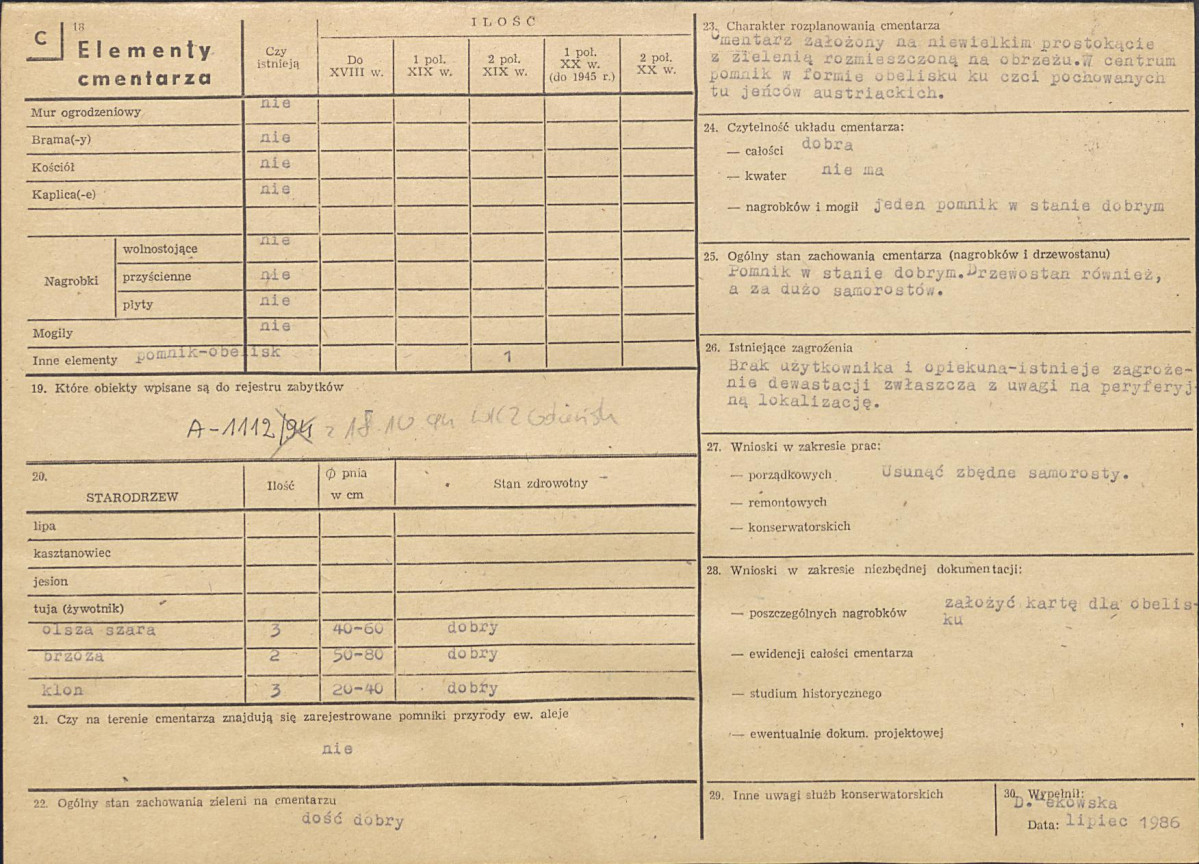 C
18
Elementy
cmentarza
Czy
istnieją
ILOŚĆ
Do
XVIII w.
1 poł.
XIX w.
2 poł.
XIX w.
1 poł.
XX w.
(do 1945 r.)
2 poł.
XX w.
Mur ogrodzeniowy nie
Brama(-y) nie
Kościół nie
Kaplica(-e) nie
Nagrobki
wolnostojące nie
przyścienne nie
płyty nie
Mogiły nie
Inne elementy pomnik-obelisk 1
19. Które obiekty wpisane są do rejestru zabytków
A-1112/94 z 18.10 94 WKZ Gdańsk
20.
STARODRZEW
Ilość
Ø pnia
w cm
Stan zdrowotny
lipa
kasztanowiec
jesion
tuja (żywotnik)
olsza szara 3 40-60 dobry
brzoza 2 50-80 dobry
klon 3 20-40 dobry
21. Czy na terenie cmentarza znajdują się zarejestrowane pomniki przyrody ew. aleje
nie
22. Ogólny stan zachowania zieleni na cmentarzu
dość dobry
23. Charakter rozplanowania cmentarza
Cmentarz założony na niewielkim prostokącie
z zielenią rozmieszczoną na obrzeżu.W centrum
pomnik w formie obelisku ku czci pochowanych
tu jeńców austriackich.
24. Czytelność układu cmentarza:
— całości dobra
— kwater nie ma
— nagrobków i mogił jeden pomnik w stanie dobrym
25. Ogólny stan zachowania cmentarza (nagrobków i drzewostanu)
Pomnik w stanie dobrym.Drzewostan również,
a za dużo samorostów.
26. Istniejące zagrożenia
Brak użytkownika i opiekuna-istnieje zagroże-
nie dewastacji zwłaszcza z uwagi na peryferyj-
ną lokalizację.
27. Wnioski w zakresie prac:
— porządkowych Usunąć zbędne samorosty.
— remontowych
— konserwatorskich
28. Wnioski w zakresie niezbędnej dokumentacji:
— poszczególnych nagrobków założyć kartę dla obelis-
ku
— ewidencji całości cmentarza
— studium historycznego
— ewentualnie dokum. projektowej
29. Inne uwagi służb konserwatorskich
30. Wypełnił:
D.
Data: lipiec 1986